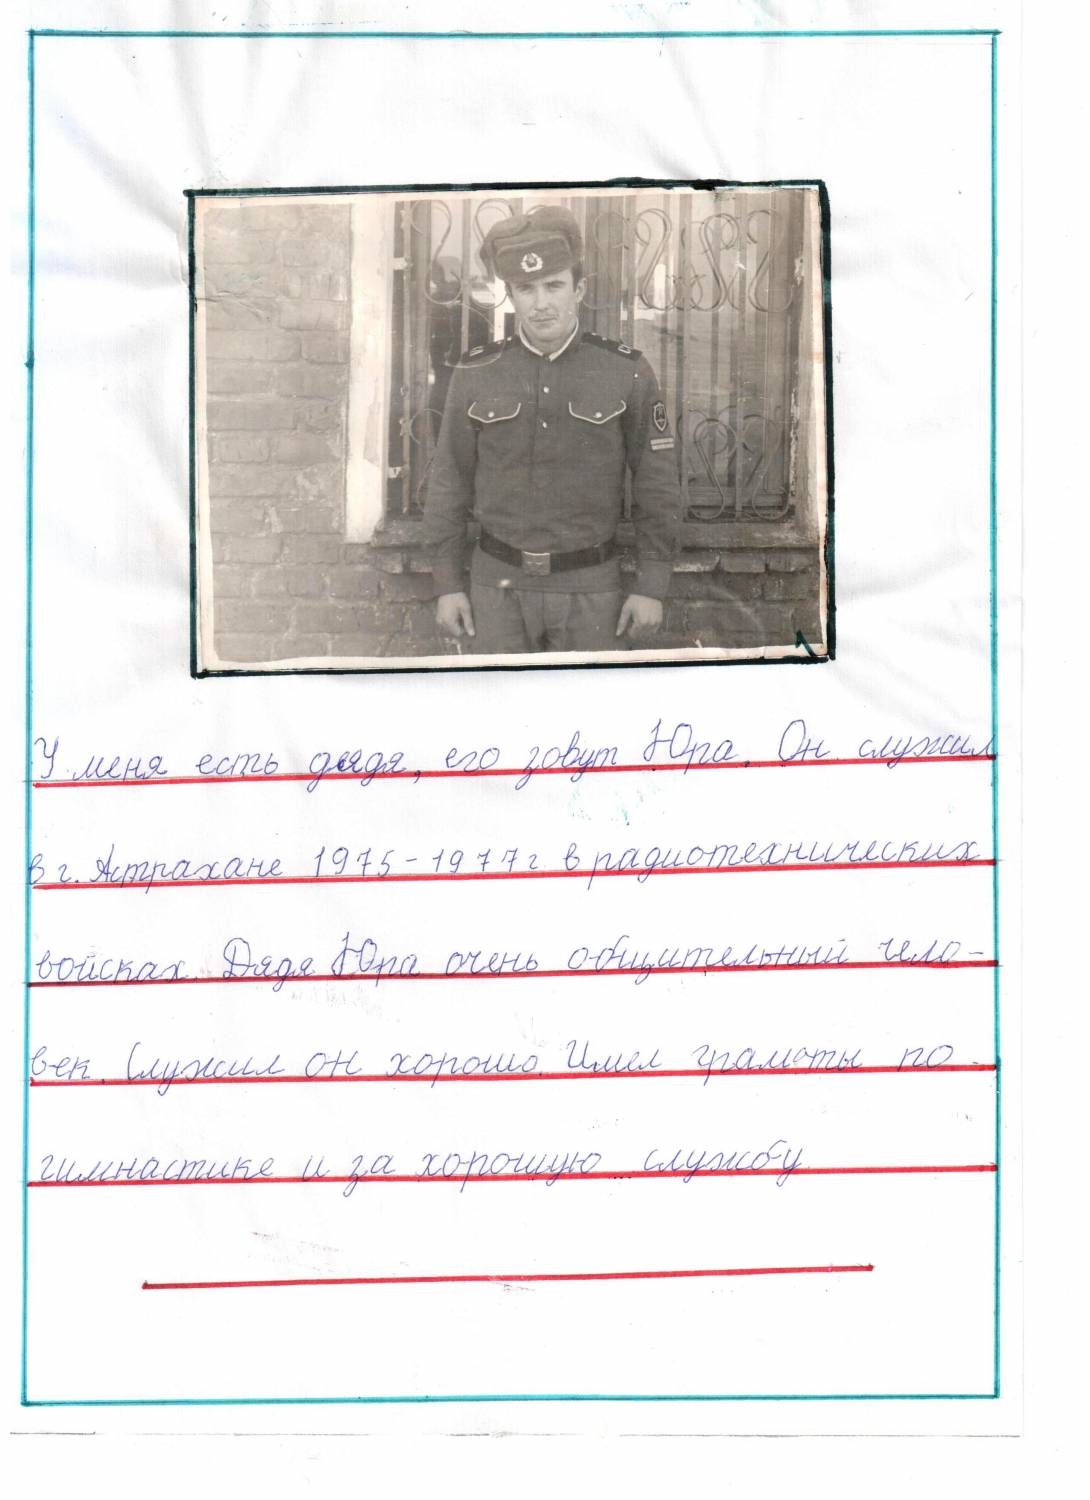 У меня есть дядя, его зовут Юра. Он служил
в г. Астрахане 1975-1977г в радиотехнических
войсках. Дядя Юра очень общительный чело-
век. Служил он хорошо. Имел грамоты по-
гимнастике и за хорошую службу.